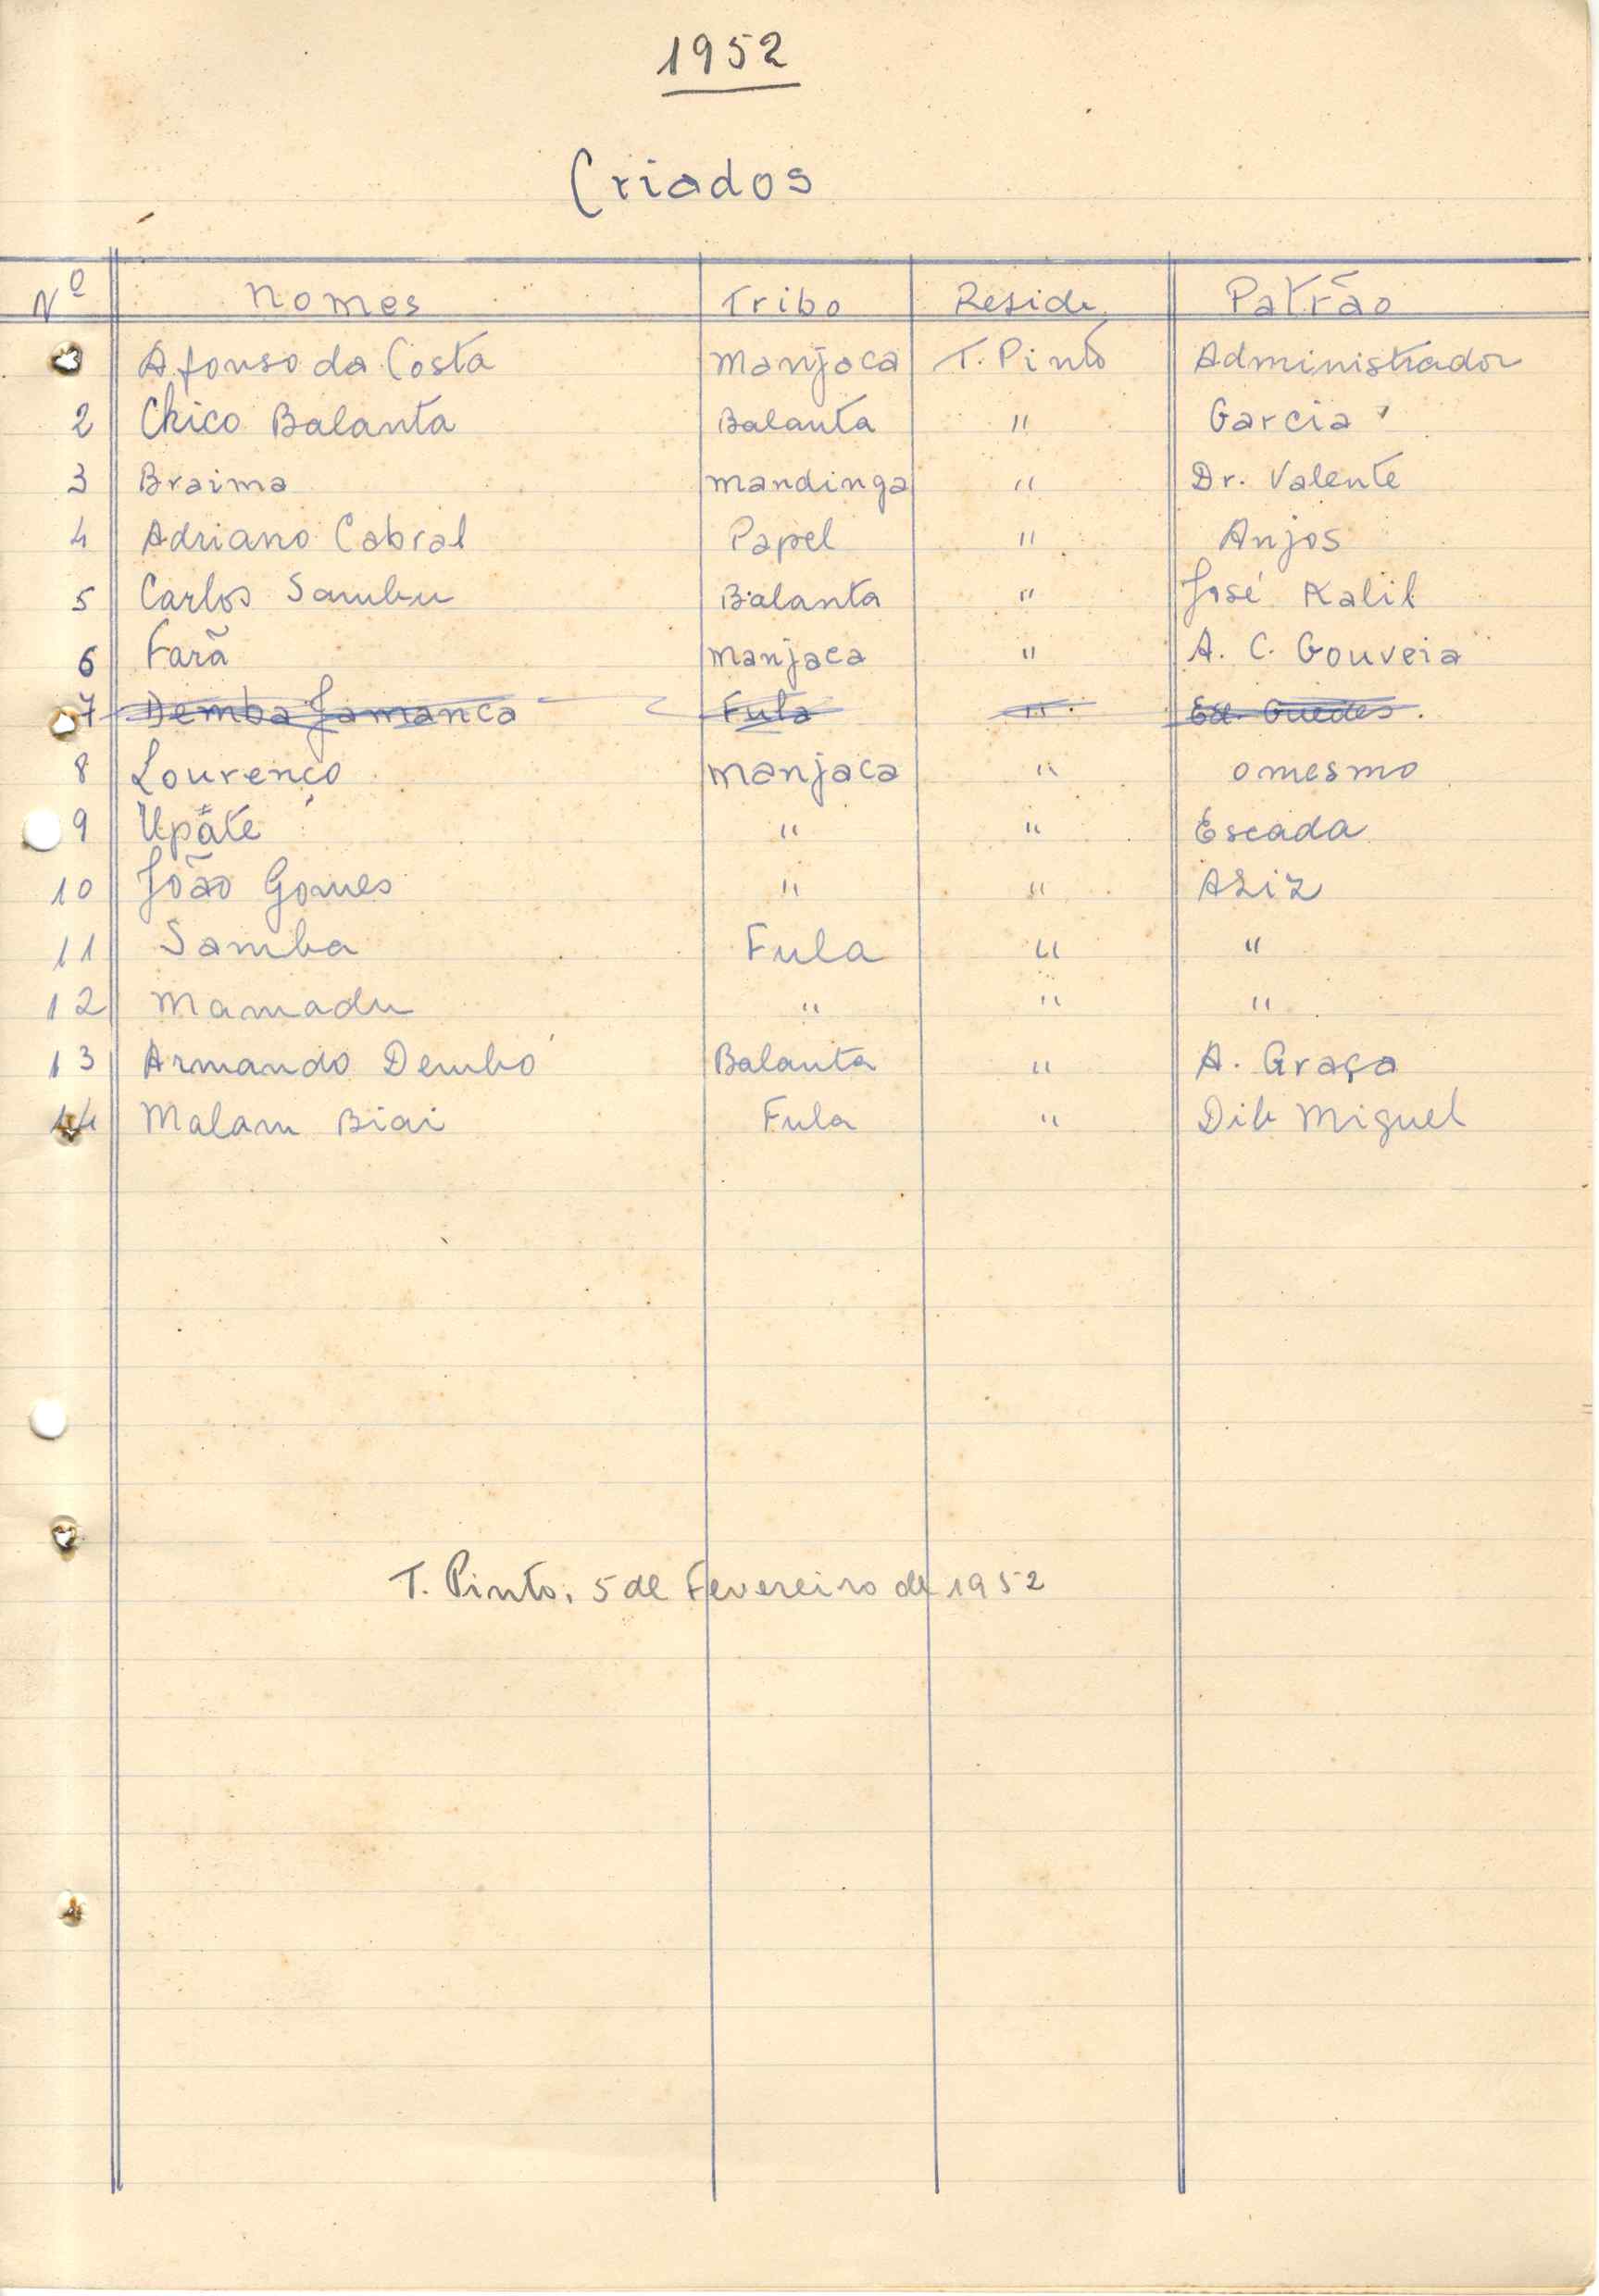 1952
Criados
Nº Nomes Tribo Reside Patrão
Afonso da Costa Manjaca T. Pinto Administrador
2 Chico Balanta Balanta " Garcia
3 Braima Mandinga " Dr. Valente
4 Adriano Cabral Papel " Anjos
5 Carlos Sambu Balanta " José Kalil
6 Farã Manjaca " A. C. Gouveia
7 Demba Jamanca Fula " Ed. Guedes.
8 Lourenço Manjaca " o mesmo
9 Upate " " Escada
10 João Gomes " " Aziz
11 Samba Fula " "
12 Mamadu " " "
13 Armando Dembó Balanta " A. Graça
14 Malam Biai Fula " Dib Miguel
T. Pinto, 5 de Fevereiro de 1952